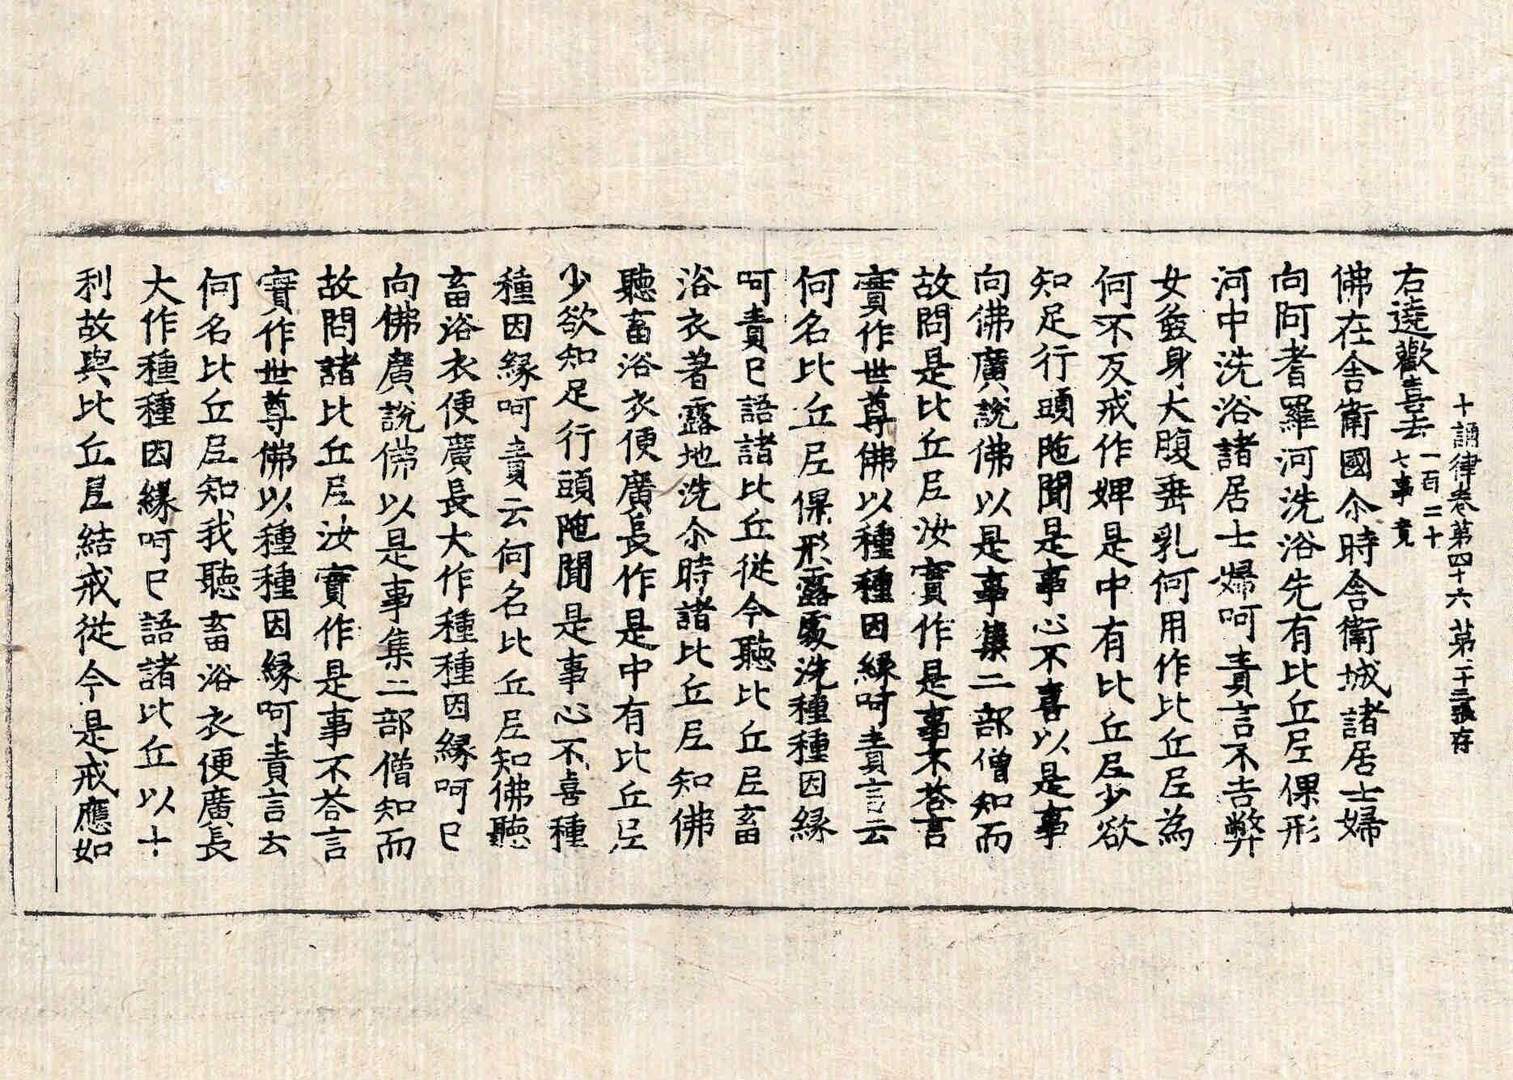 十誦律卷第四十六　第二十三張存
右遶歡喜去一百二十七事竟
佛在舍衛國尒時舍衛城諸居士婦
向阿耆羅河洗浴先有比丘尼倮形
河中洗浴諸居士婦呵責言不吉弊
女麁身大腹垂乳何用作比丘尼為
何不反戒作婢是中有比丘尼少欲
知足行頭陁聞是事心不喜以是事
向佛廣說佛以是事集二部僧知而
故問是比丘尼汝實作是事不荅言
實作世尊佛以種種因緣呵責言云
何名比丘尼倮形露處洗種種因緣
呵責已語諸比丘從今聽比丘尼畜
浴衣著露地洗尒時諸比丘尼知佛
聽畜浴衣便廣長作是中有比丘尼
少欲知足行頭陁聞是事心不喜種
種因緣呵責云何名比丘尼知佛聽
畜浴衣便廣長大作種種因緣呵已
向佛廣說佛以是事集二部僧知而
故問諸比丘尼汝實作是事不荅言
實作世尊佛以種種因緣呵責言云
何名比丘尼知我聽畜浴衣便廣長
大作種種因緣呵已語諸比丘以十
利故與比丘尼結戒從今是戒應如